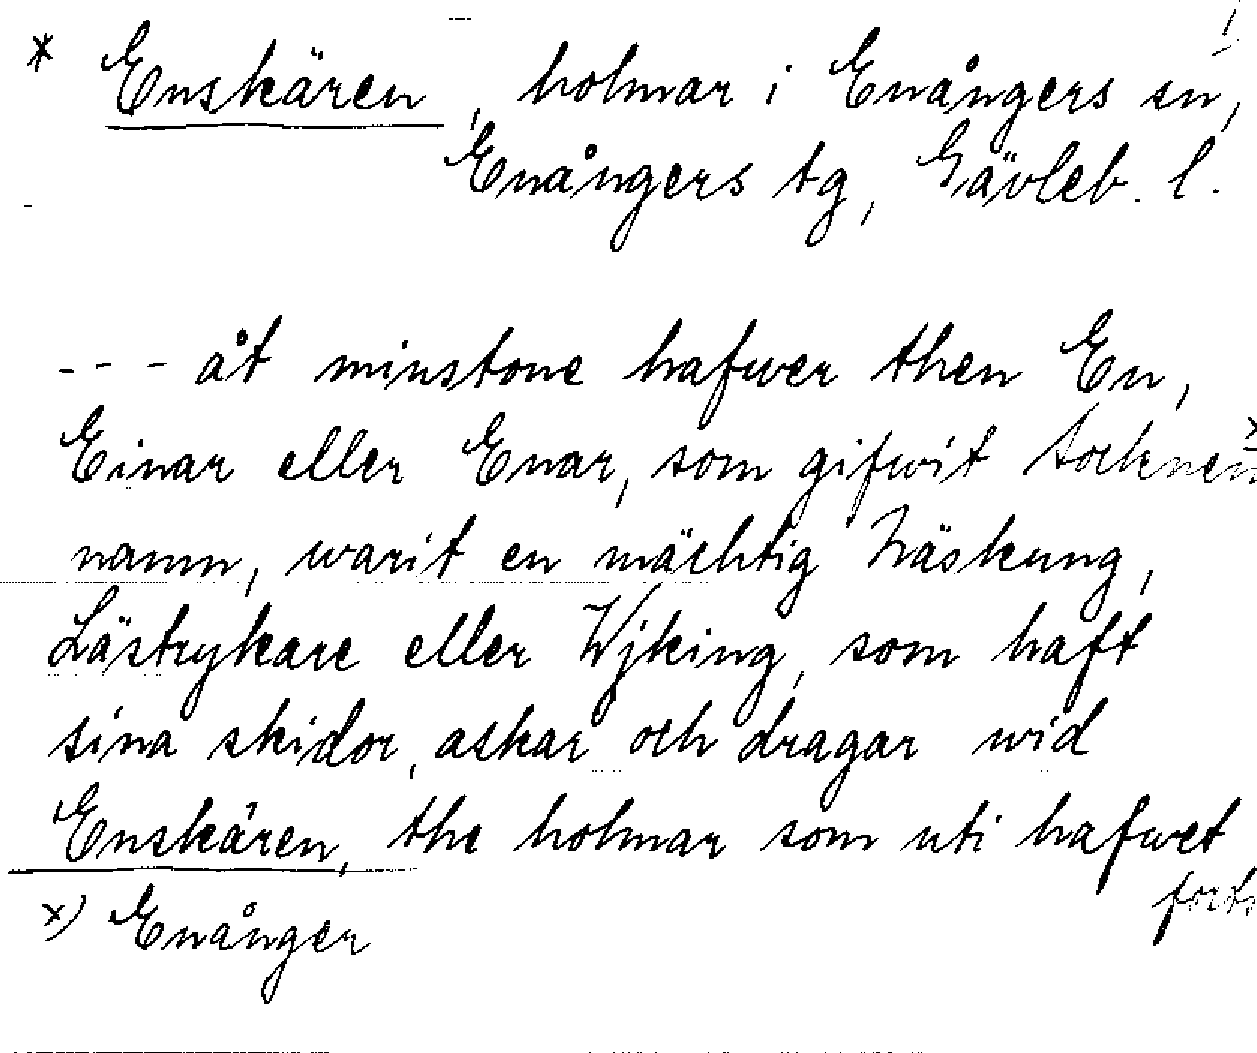 * Enskären, holmar i Enångers sn,
Enångers tg, Gävleb. l.
- - - åt minstone hafwer then En,
Einar eller Enar, som gifwit socknen x
namn, warit en mächtig Näskung,
Lästrykare eller Wjking, som haft
sina skidor, askar och dragar wid
Enskären, the holmar som uti hafwet
forts
x) Enånger